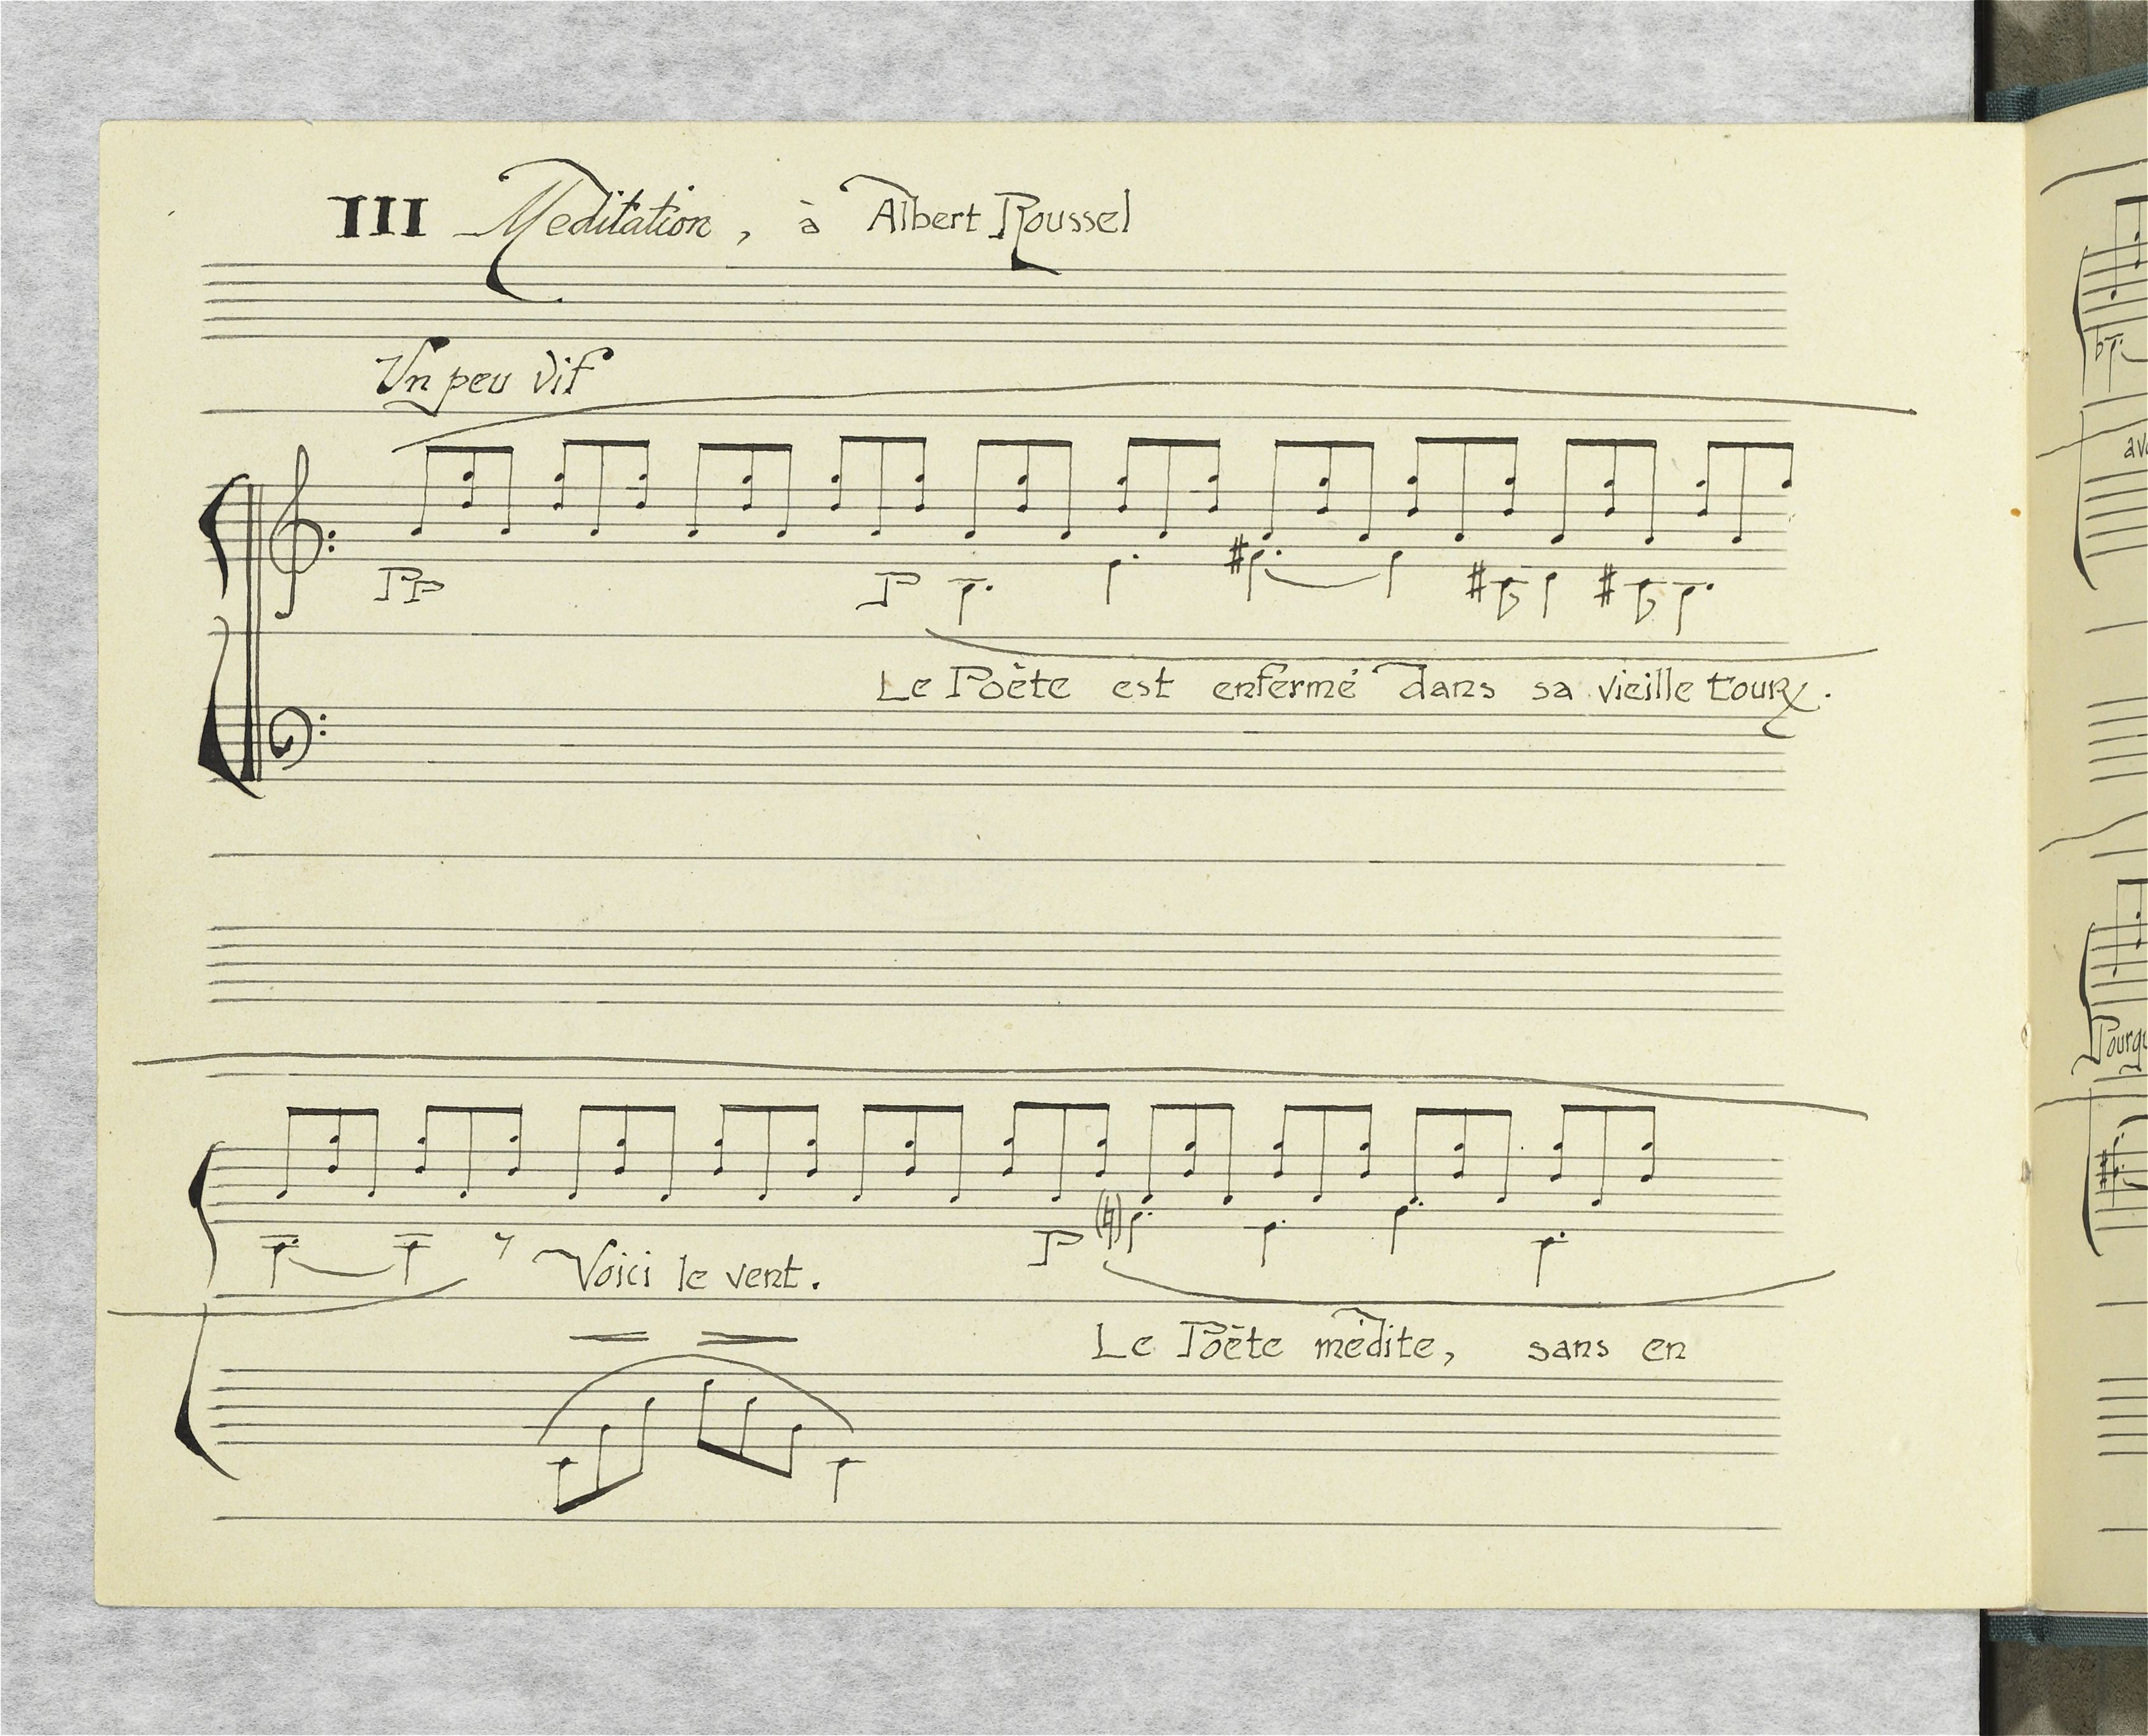 III Meditation, à Albert Roussel
Un peu vif
PP P
Le Poète est enfermé dans sa vieille tour.
Voici le vent. P
Le Poète médite, sans en